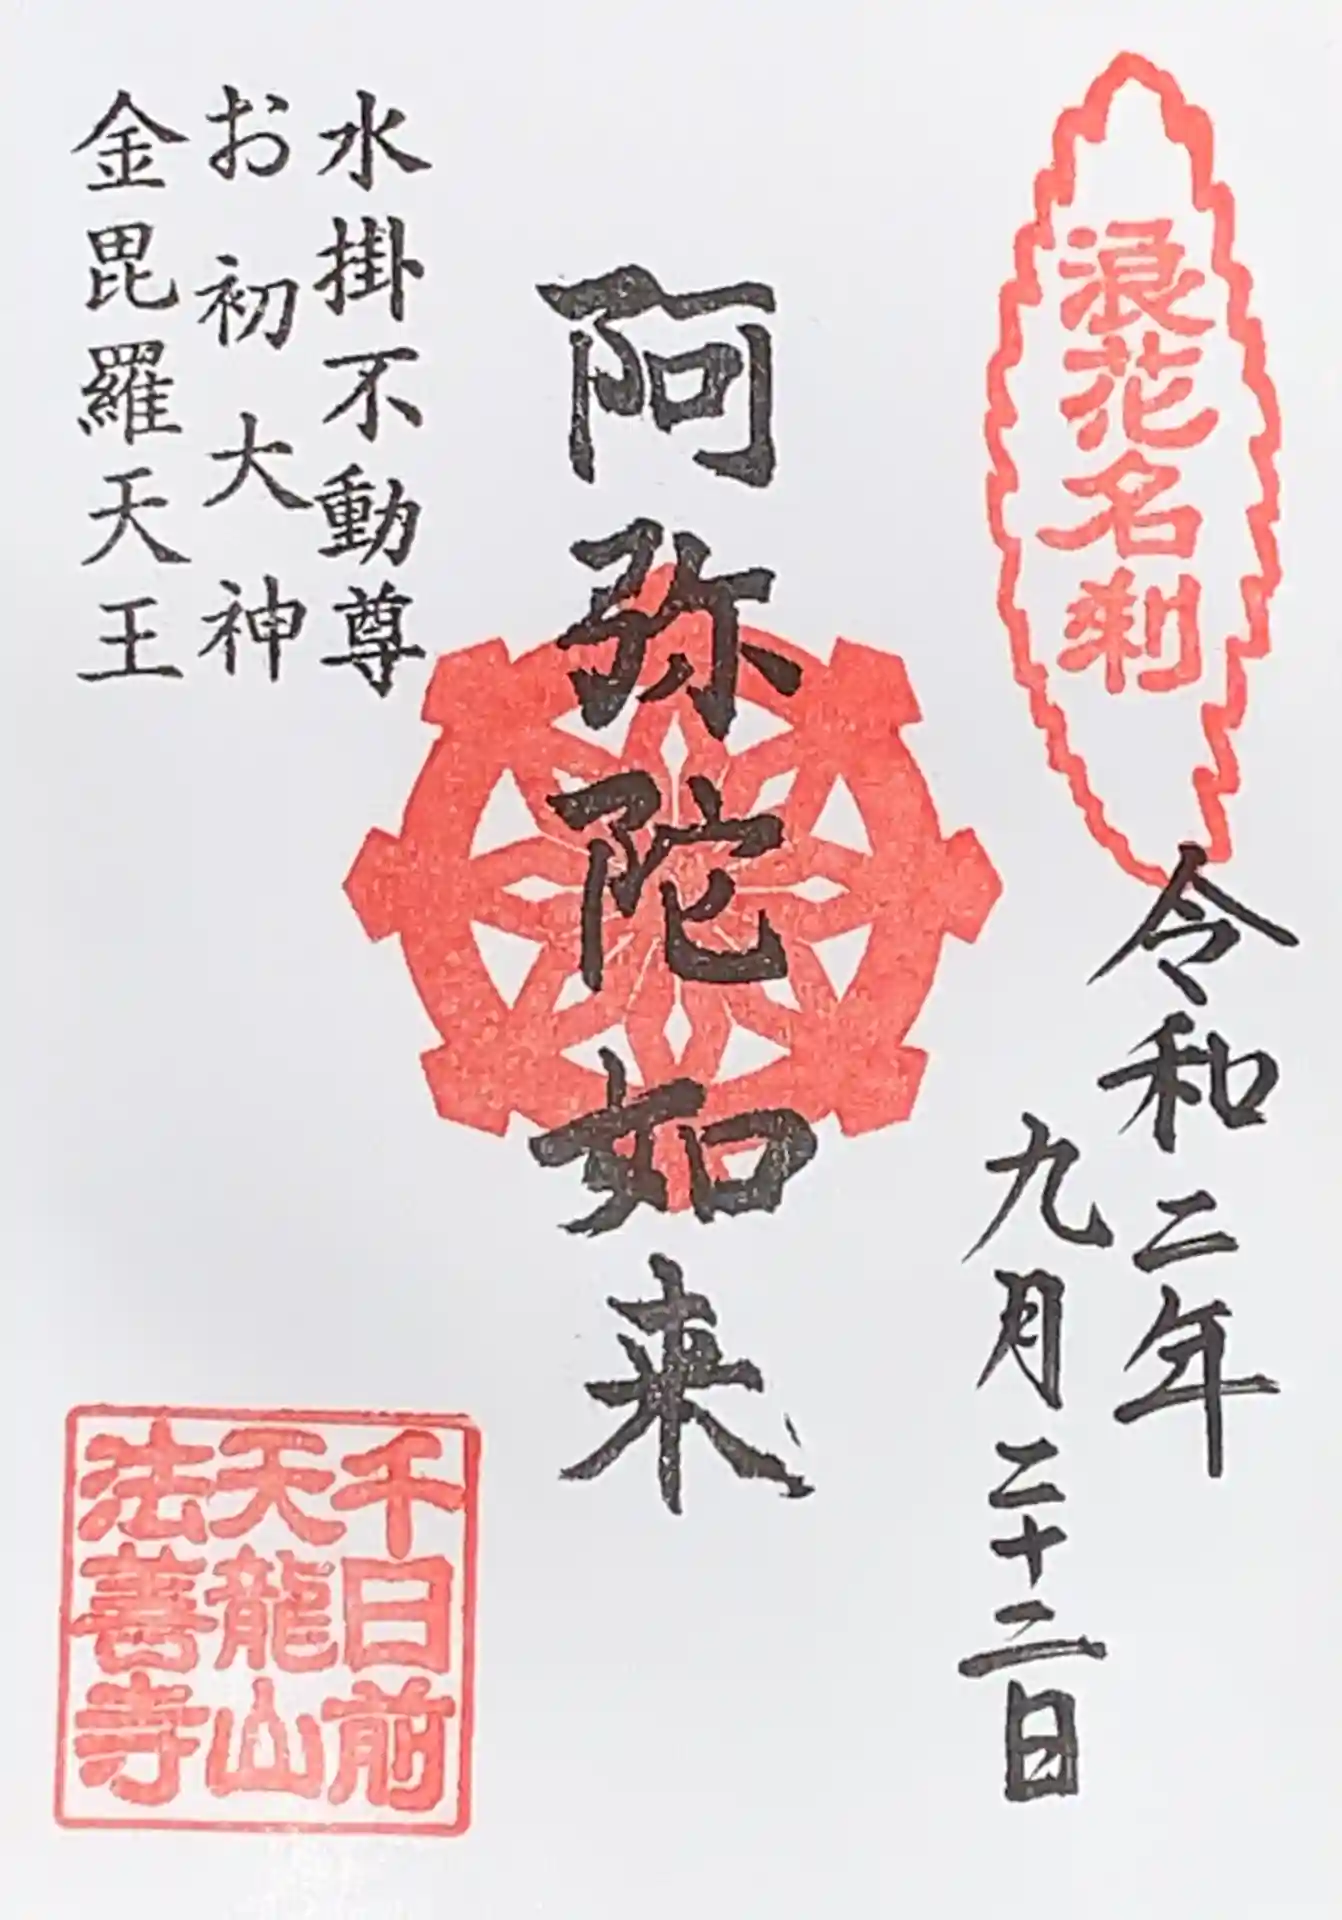 浪花名刹
令和二年
九月二十二日
阿弥陀如来
水掛不動尊
お初大神
金毘羅天王
千日前
天龍山
法善寺